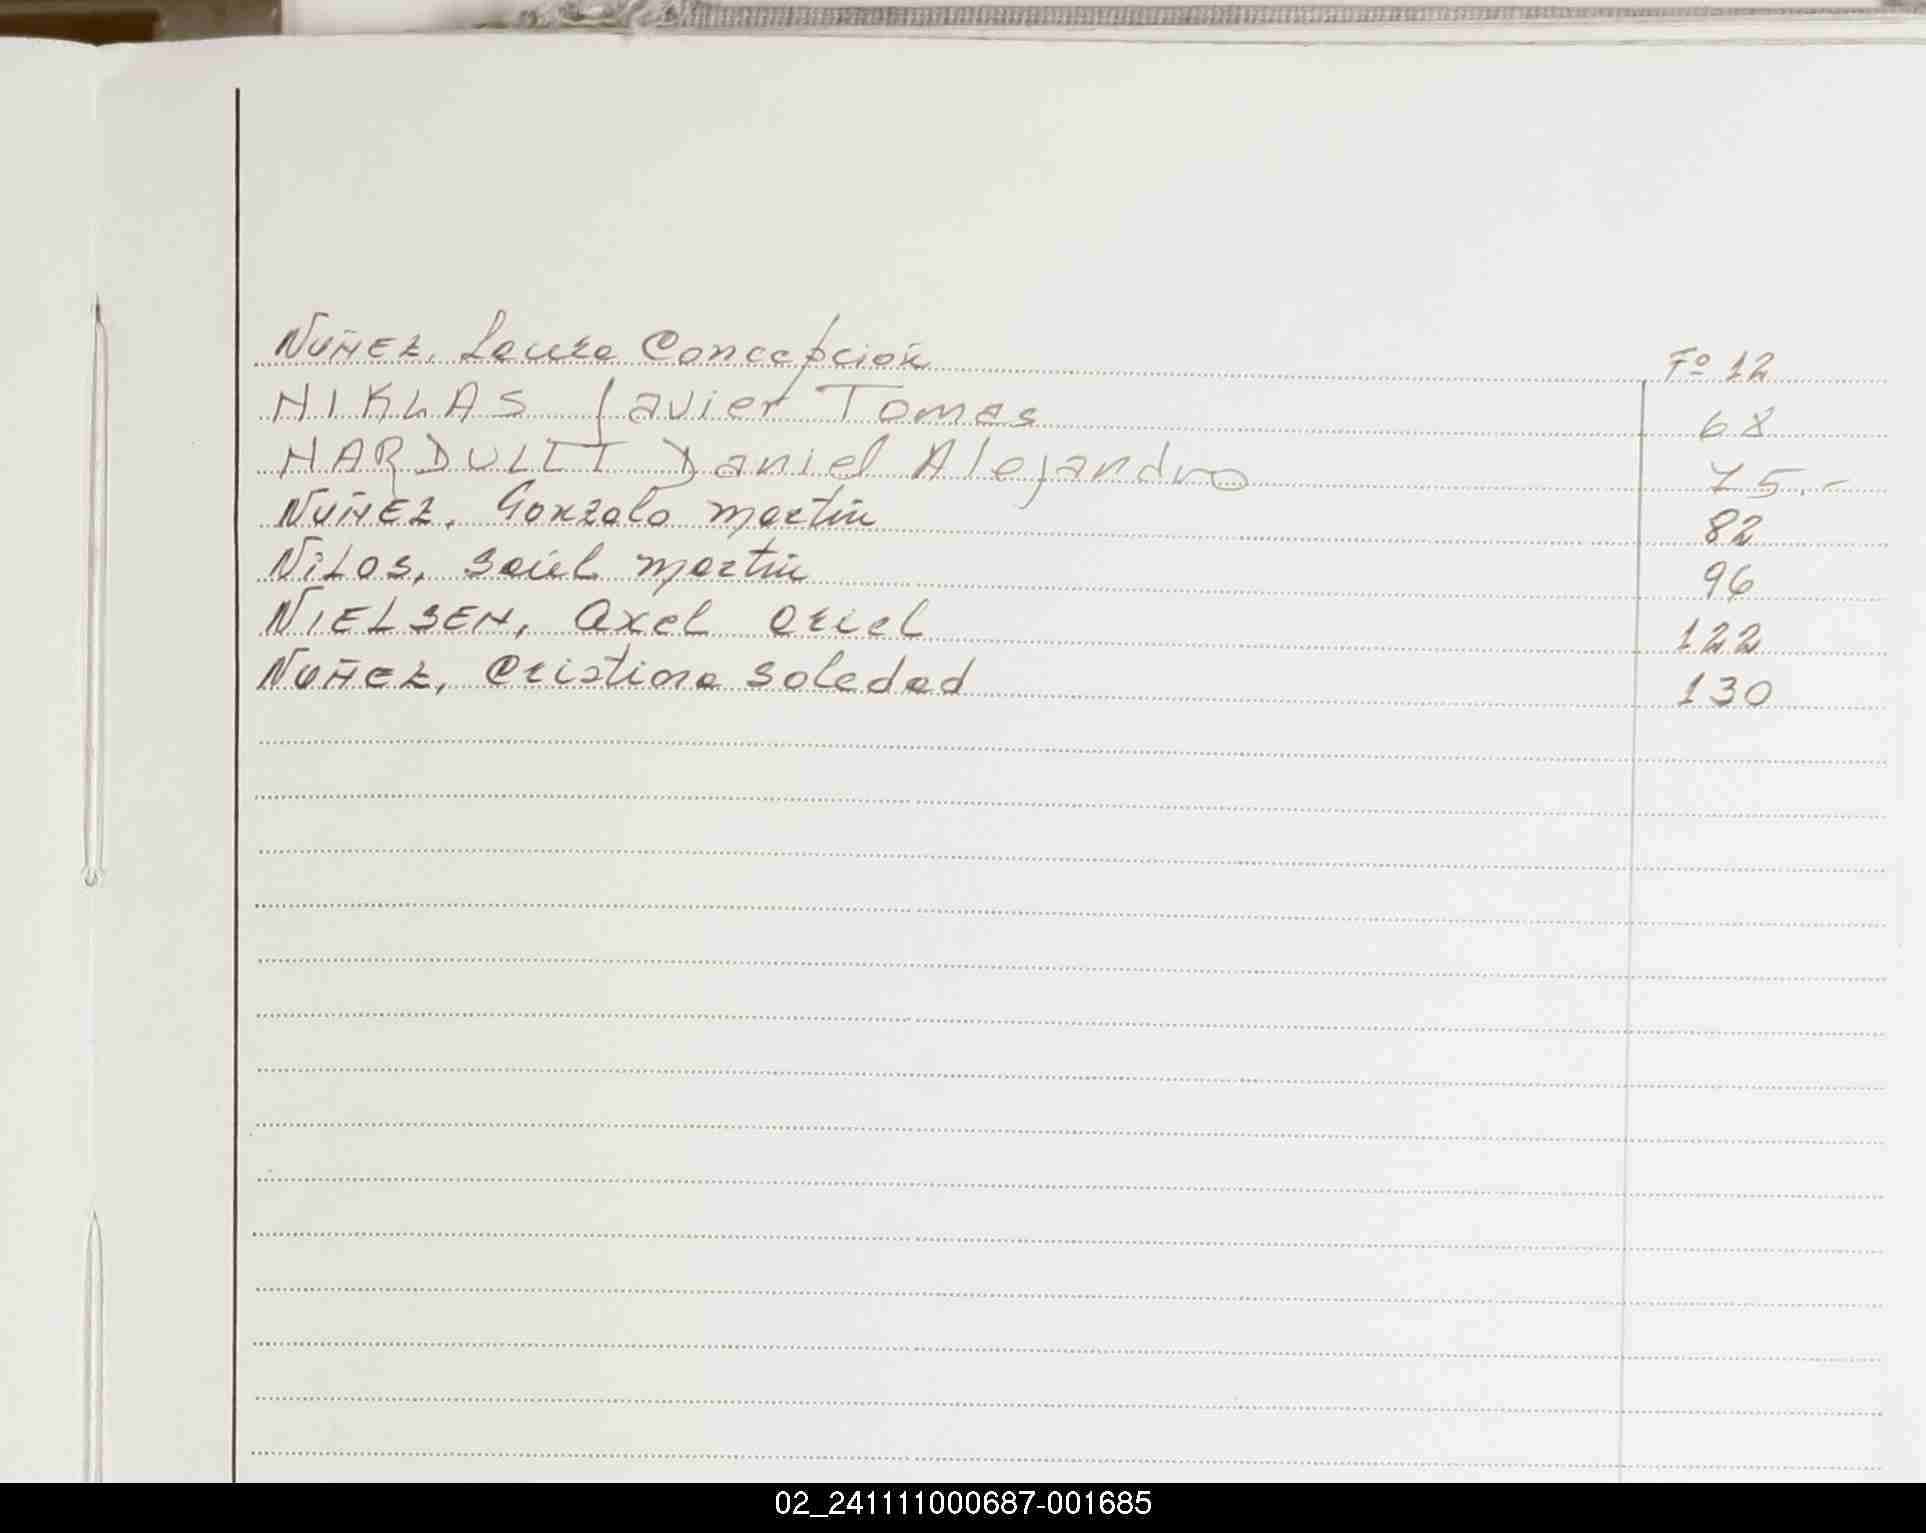 NUÑEZ, Laura Concepción Fº 12
NIKLAS Javier Tomas 68
NARDULLI Daniel Alejandro 75.-
NUÑEZ, Gonzalo Martín 82
NiLOS, Saúl Martín 96
NIELSEN, Axel Oriel 122
NUÑEZ, Cristina Soledad 130
02_241111000687-001685